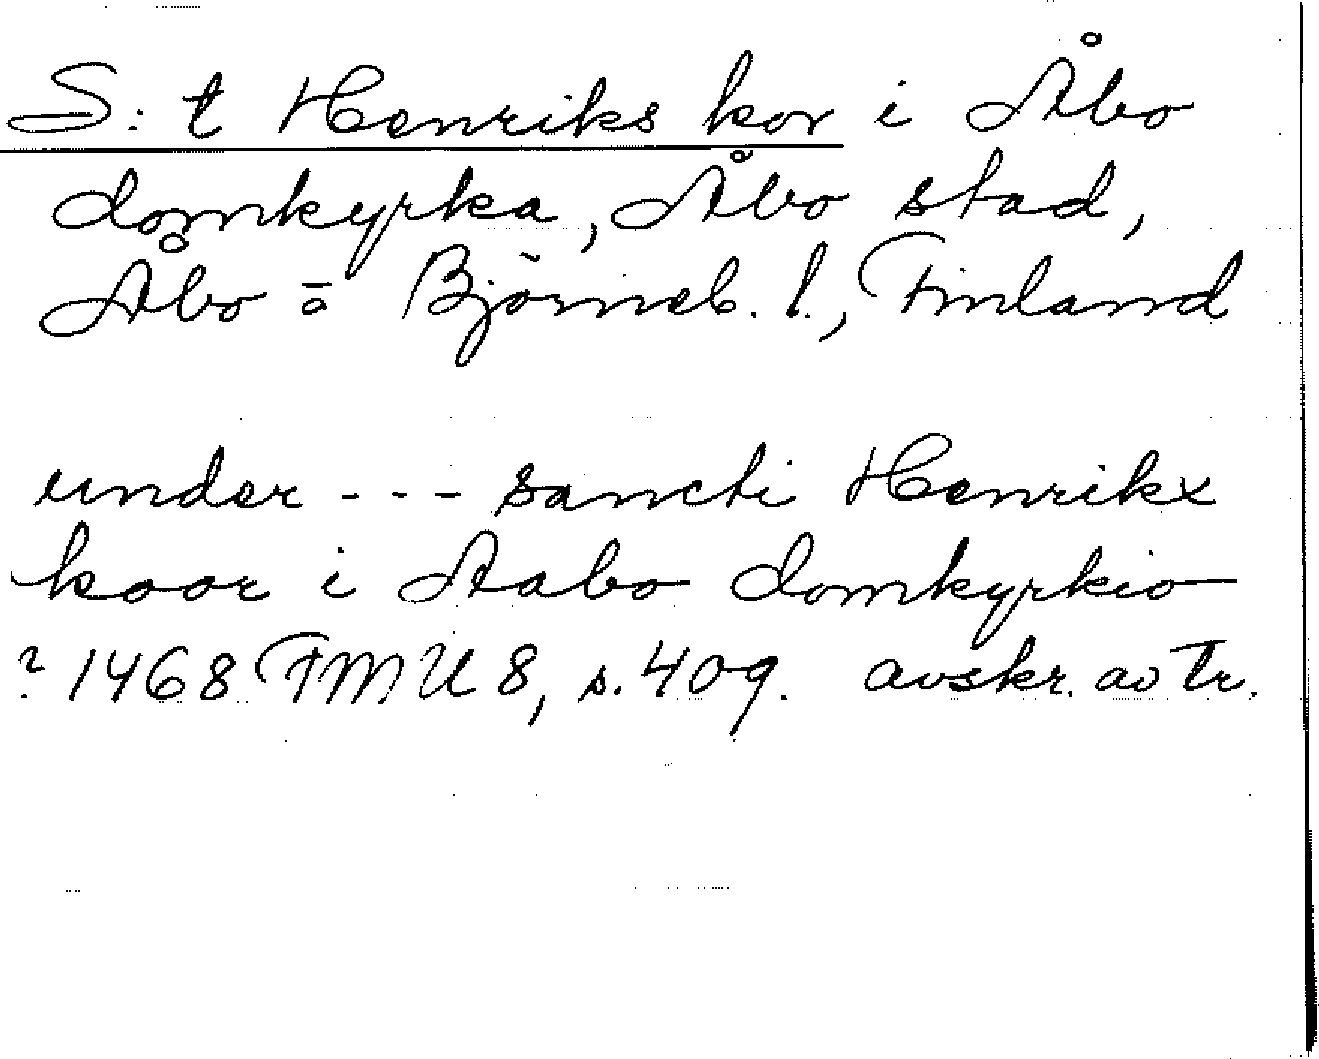 S:t Henriks kor i Åbo
domkyrka, Åbo stad,
Åbo o Björneb. l., Finland
under --- sancti Henrikx
koor i Aabo domkyrkio
? 1468 FMU 8, s. 409. avskr. av tr.